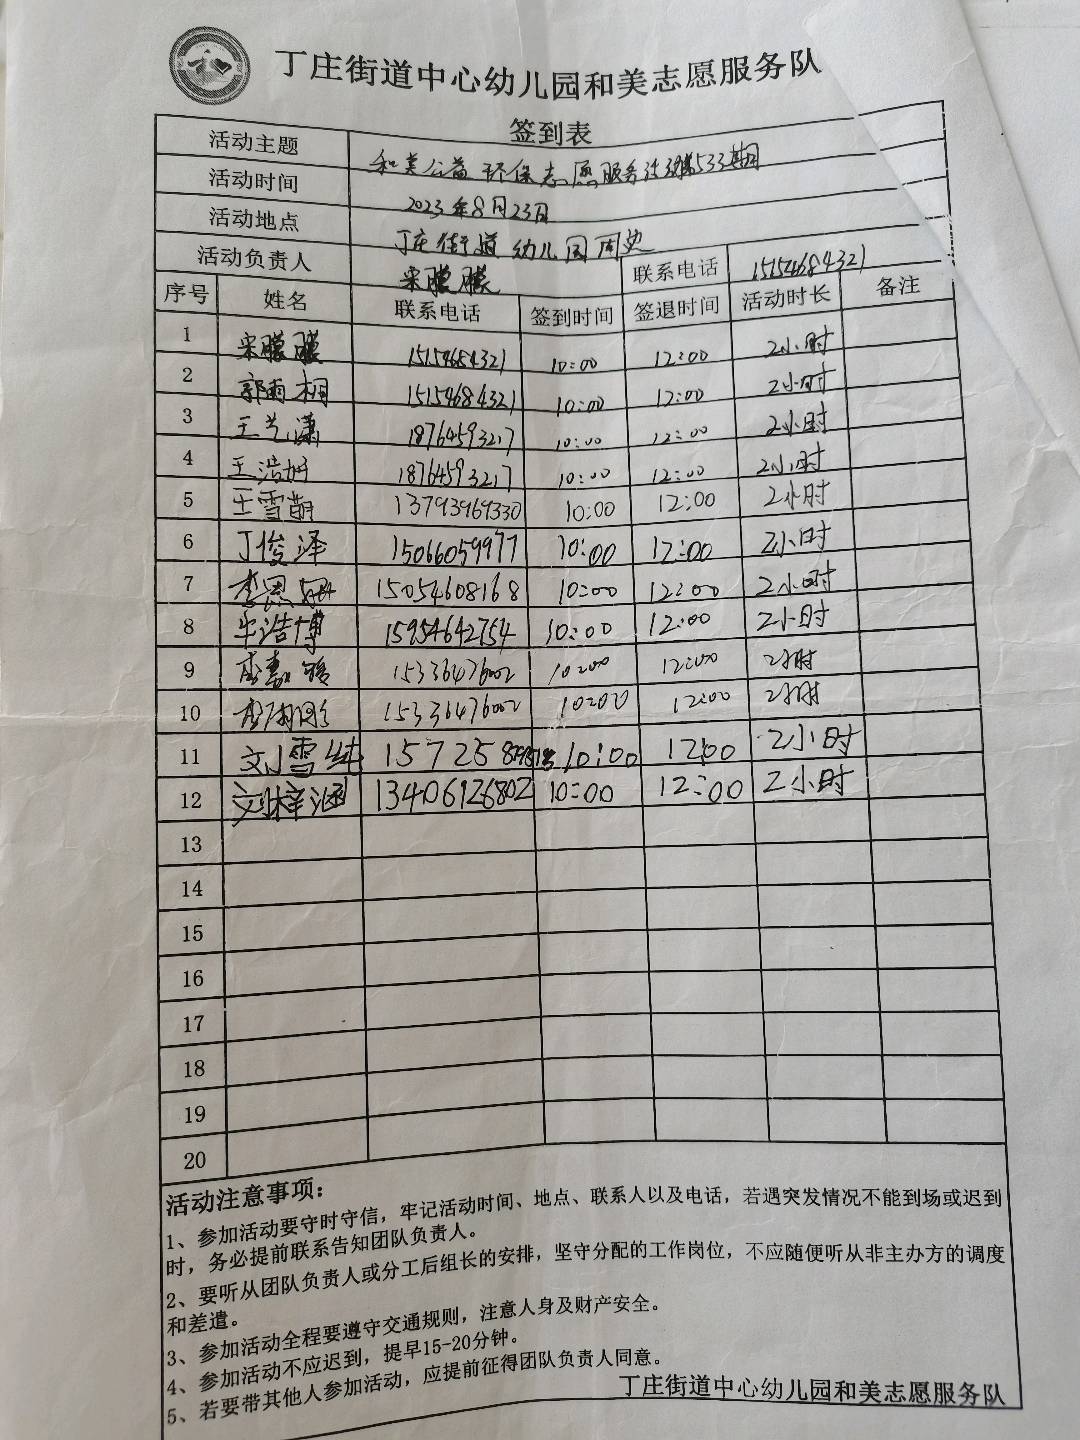 丁庄街道中心幼儿园和美志愿服务队
签到表
活动主题 和美公益环保志愿服务活动第533期
活动时间 2023年8月23日
活动地点 丁庄街道幼儿园周边
活动负责人 宋朦朦 联系电话 15154684321
序号 姓名 联系电话 签到时间 签退时间 活动时长 备注
1 宋朦朦 15154684321 10:00 12:00 2小时
2 郭雨桐 15154684321 10:00 12:00 2小时
3 王艺潇 18764593217 10:00 12:00 2小时
4 王浩 18764593217 10:00 12:00 2小时
5 王雪萌 13793969330 10:00 12:00 2小时
6 丁俊泽 15066059977 10:00 12:00 2小时
7 李恩 15054608168 10:00 12:00 2小时
8 浩博 15954642754 10:00 12:00 2小时
9 15336476002 10:00 12:00 2小时
10 15336476002 10:00 12:00 2小时
11 雪纯 10:00 12:00 2小时
12 刘梓涵 13406126802 10:00 12:00 2小时
13
14
15
16
17
18
19
20
活动注意事项：
1、参加活动要守时守信，牢记活动时间、地点、联系人以及电话，若遇突发情况不能到场或迟到
时，务必提前联系告知团队负责人。
2、要听从团队负责人或分工后组长的安排，坚守分配的工作岗位，不应随便听从非主办方的调度
和差遣。
3、参加活动全程要遵守交通规则，注意人身及财产安全。
4、参加活动不应迟到，提早15-20分钟。
5、若要带其他人参加活动，应提前征得团队负责人同意。
丁庄街道中心幼儿园和美志愿服务队